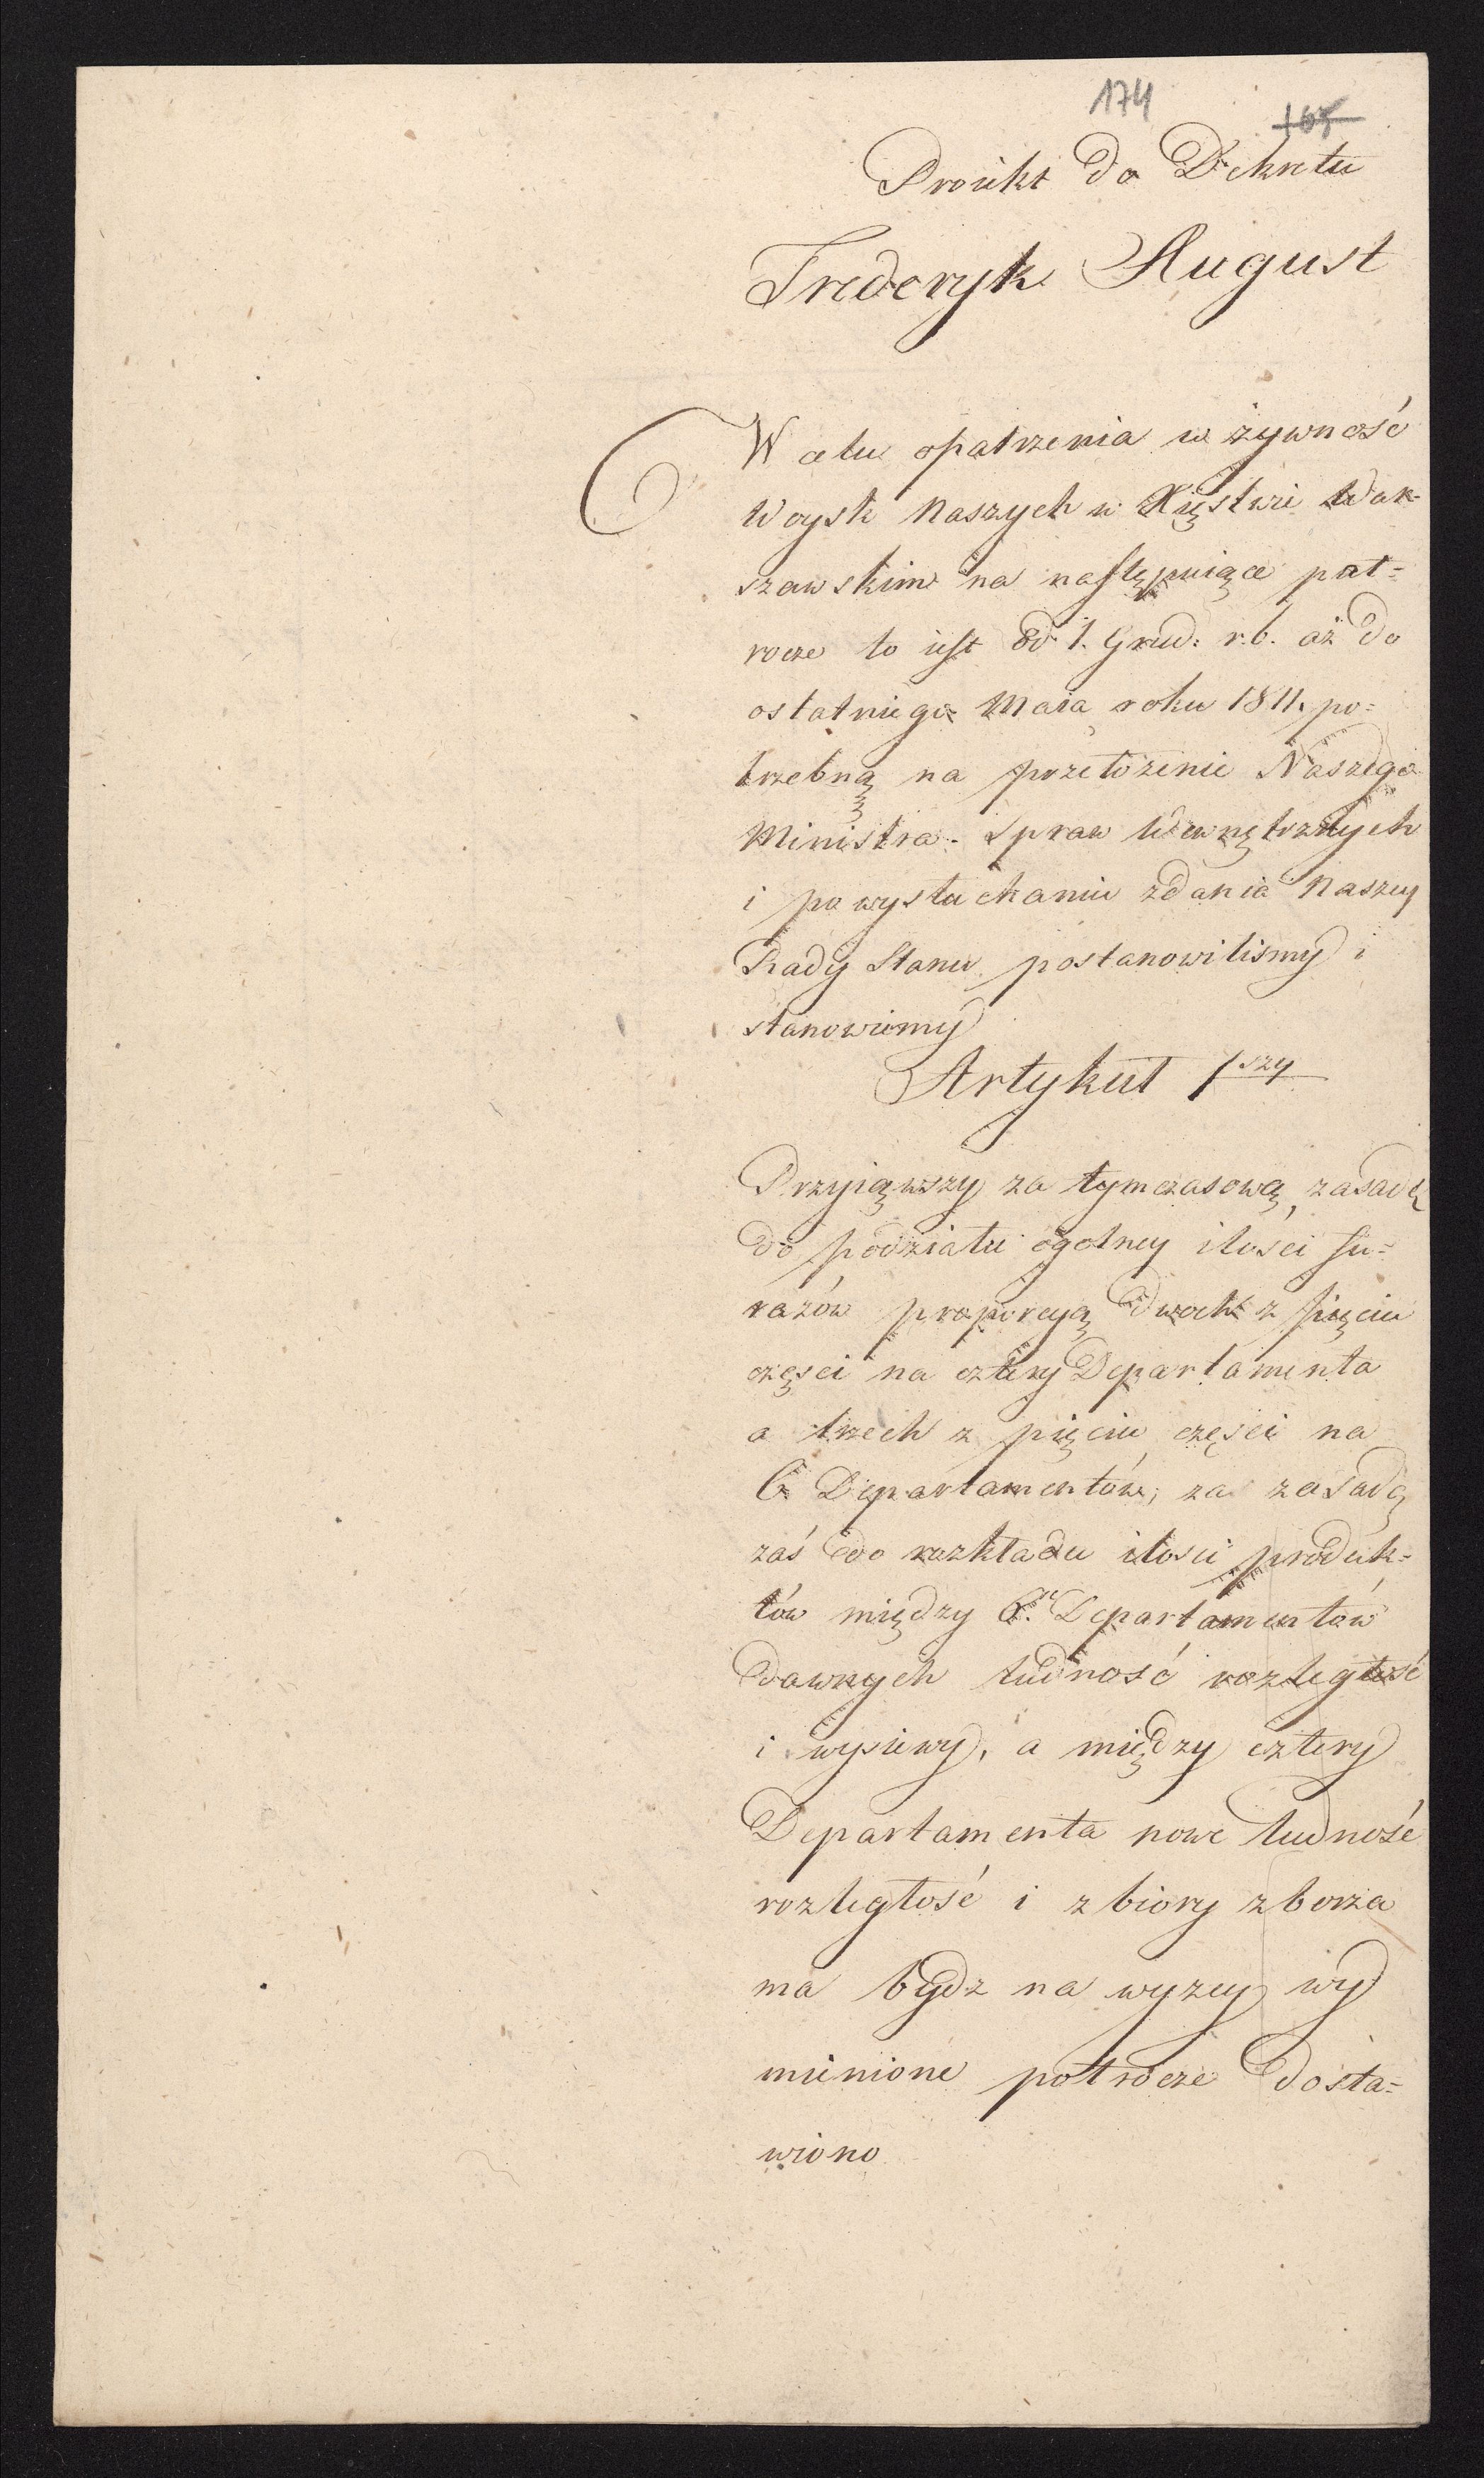 174
105
Proiekt do Dekretu
Frederyk August
W celu opatrzenia w żywność
Woysk Naszych w Xięstwie War-
szawskim na następuiące puł-
rocze to iest od 1. Grud: r.b. aż do
ostatniego Maia roku 1811. po-
trzebną na przełożenie Naszego
Ministra Spraw Wewnętrznych
i po wysłuchaniu zdania Naszey
Rady Stanu postanowiliśmy i
stanowiemy
Artykuł 1szy
Przyiąwszy za tymczasową zasadę
do podziału ogolney ilości fu-
razów proporcyą dwoch z pięciu
częsci na cztery Departamenta
a trzech z pięciu częsci na
6 Departamentów, za zasadę
zaś do rozkładu ilosci produk-
tów między 6. Departamentów
dawnych ludność rozległość
i wysiewy, a między cztery
Departamenta nowe ludność
rozległość i zbiory zboża
ma bydz na wyzey wy
mienione połrocze dosta-
wiono